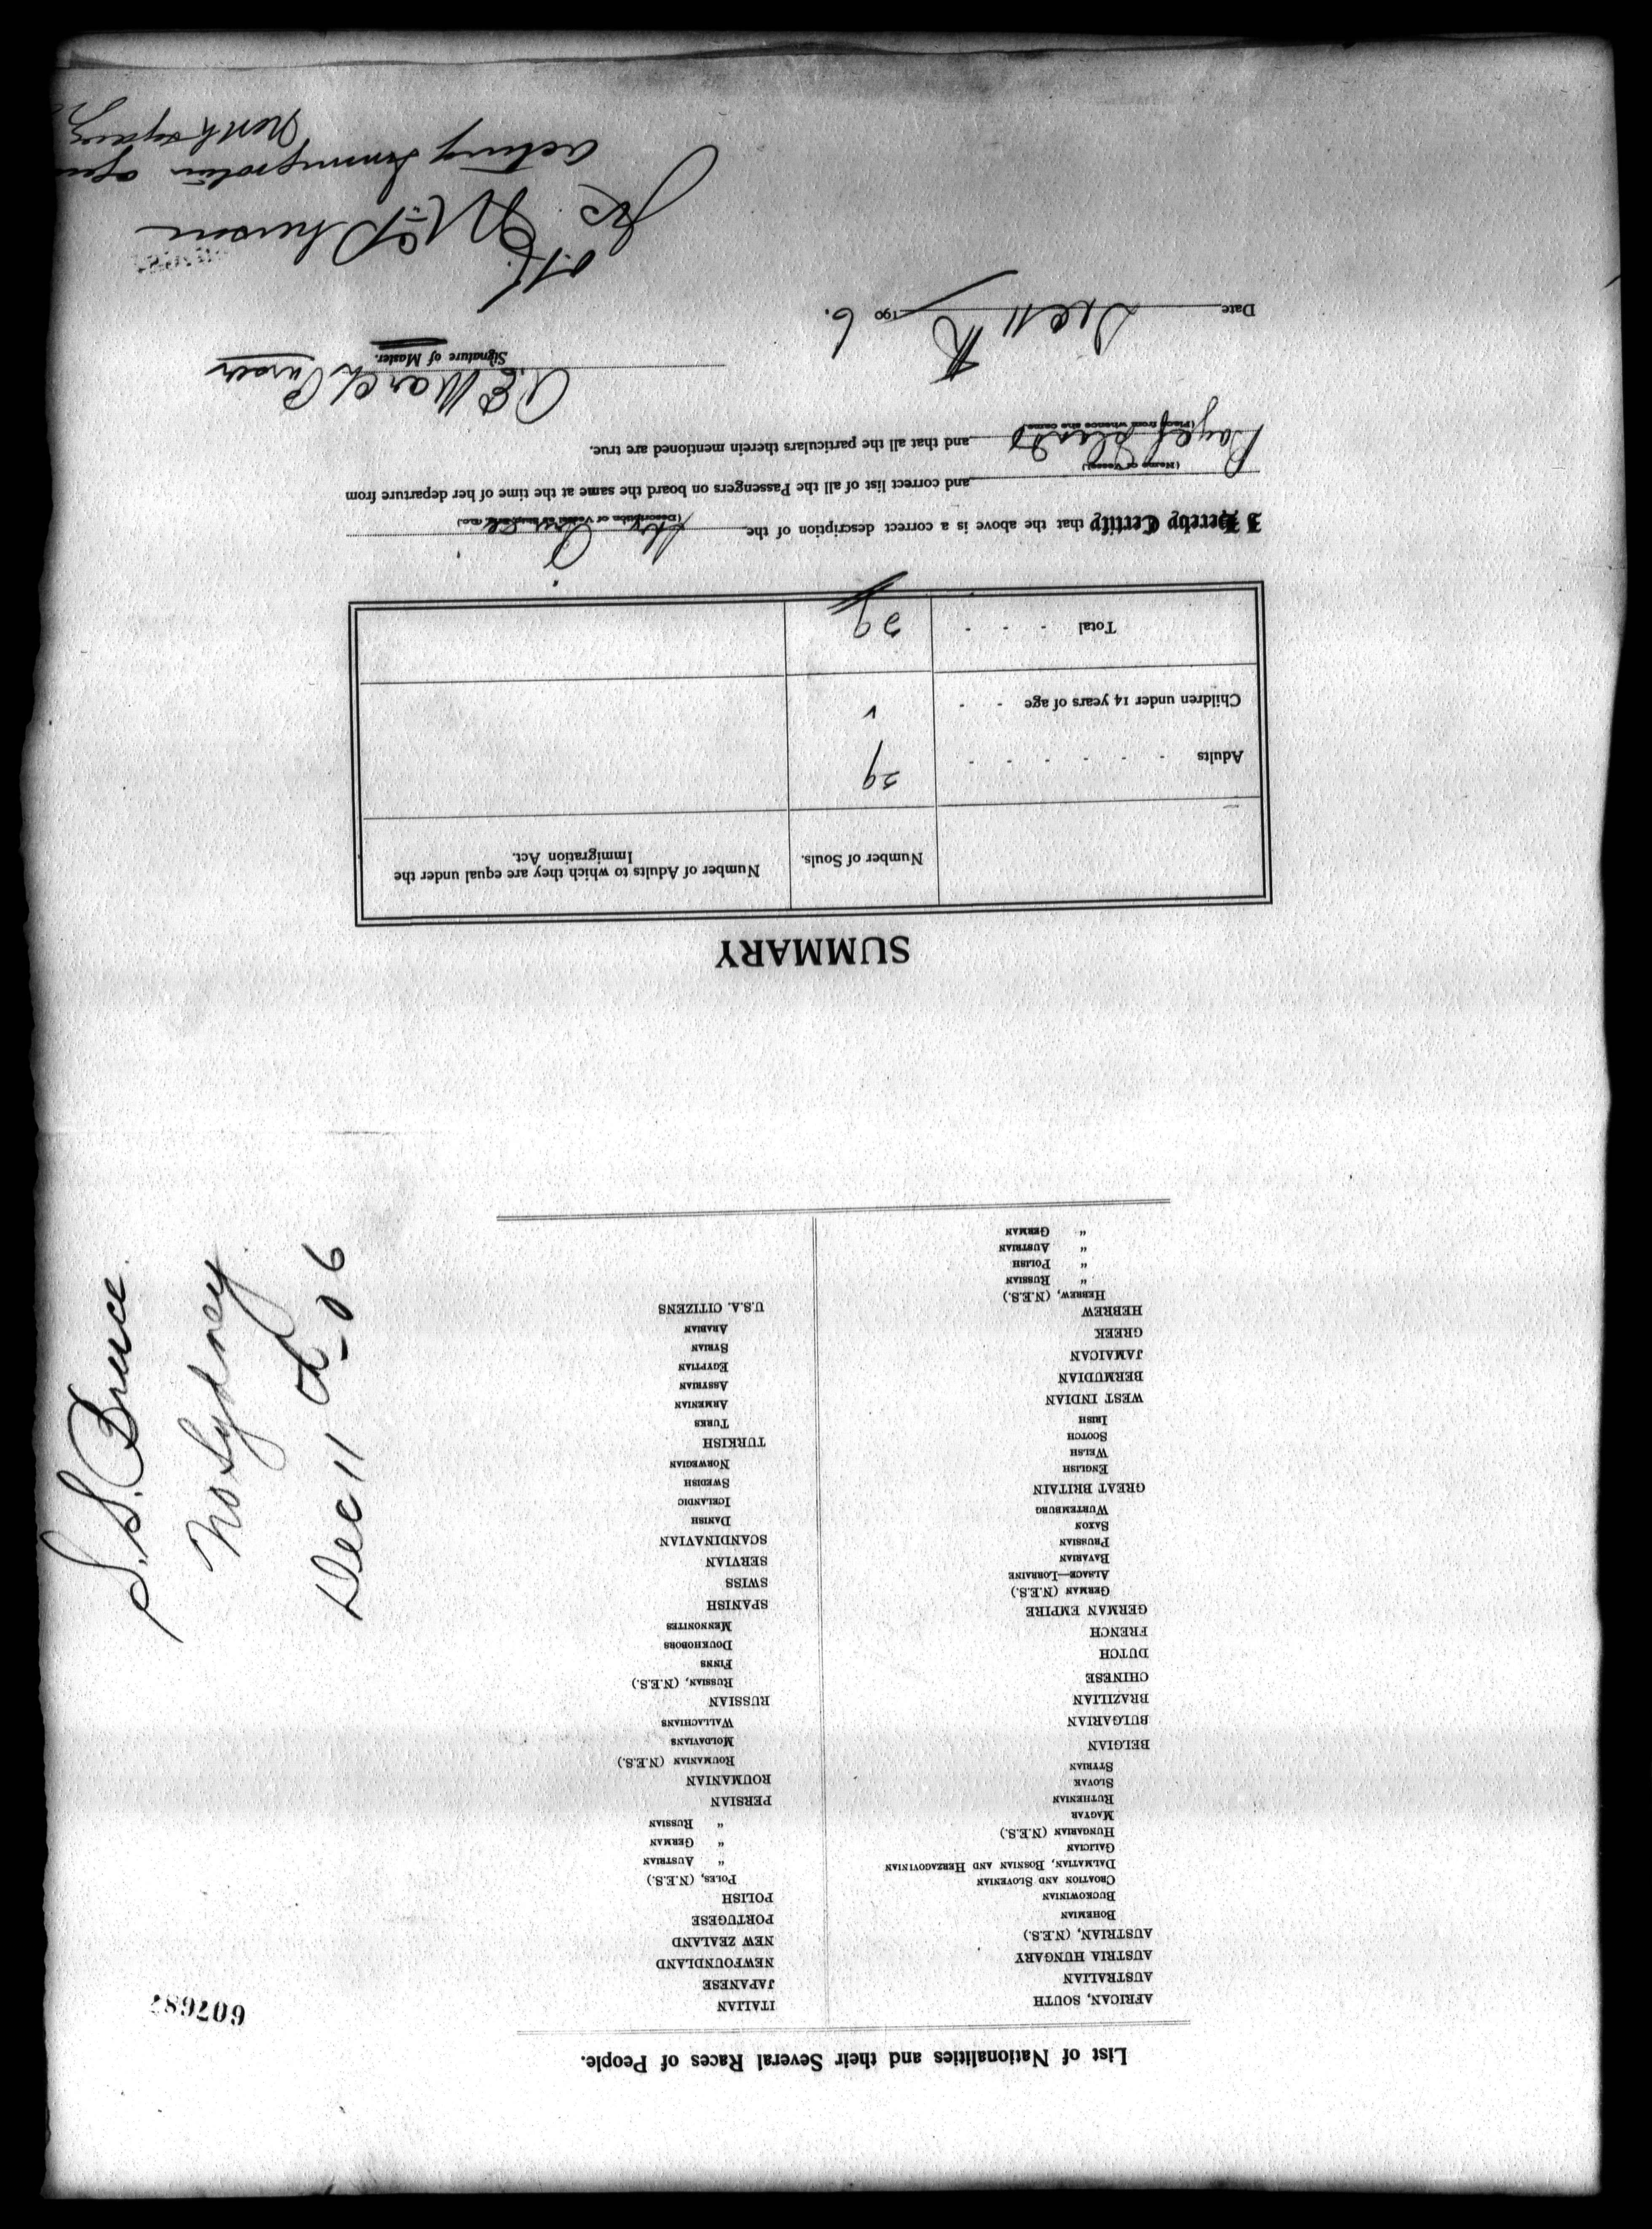 List of Nationalities and their Several Races of People.
AFRICAN, SOUTH
AUSTRALIAN
AUSTRIA HUNGARY
AUSTRIAN, (N.E.S.)
BOHEMIAN
BUCKOWINIAN
CROATION AND SLOVENIAN
DALMATIAN, BOSNIAN AND HERZAGOVINIAN
GALICIAN
HUNGARIAN (N.E.S.)
MAGYAR
RUTHENIAN
SLOVAK
STYRIAN
BELGIAN
BULGARIAN
BRAZILIAN
CHINESE
DUTCH
FRENCH
GERMAN EMPIRE
GERMAN (N.E.S.)
ALSACE—LORRAINE
BAVARIAN
PRUSSIAN
SAXON
WURTEMBURG
GREAT BRITAIN
ENGLISH
WELSH
SCOTCH
IRISH
WEST INDIAN
BERMUDIAN
JAMAICAN
GREEK
HEBREW
HEBREW, (N.E.S.)
" RUSSIAN
" POLISH
" AUSTRIAN
" GERMAN
ITALIAN
JAPANESE
NEWFOUNDLAND
NEW ZEALAND
PORTUGESE
POLISH
POLES, (N.E.S.)
" AUSTRIAN
" GERMAN
" RUSSIAN
PERSIAN
ROUMANIAN
ROUMANIAN (N.E.S.)
MOLDAVIANS
WALLACHIANS
RUSSIAN
RUSSIAN, (N.E.S.)
FINNS
DOUKHOBORS
MENNONITES
SPANISH
SWISS
SERVIAN
SCANDINAVIAN
DANISH
ICELANDIC
SWEDISH
NORWEGIAN
TURKISH
TURKS
ARMENIAN
ASSYRIAN
EGYPTIAN
SYRIAN
ARABIAN
U.S.A. CITIZENS
607687
S.S. Bruce
No Sydney
Dec 11 06
SUMMARY
Number of Souls.
Number of Adults to which they are equal under the
Immigration Act.
Adults - - - - - - 29
Children under 14 years of age - -
Total - - - 29
I Hereby Certify that the above is a correct description of the Str Bruce
(Description of Vessel as Ship, Bark, &c.)
and correct list of all the Passengers on board the same at the time of her departure from
(Name of Vessel)
and that all the particulars therein mentioned are true.
(Place from whence she came)
Purser
Signature of Master.
Date Dec 11th 1906.
Jas. McPherson
Acting Immigration
North Sydney